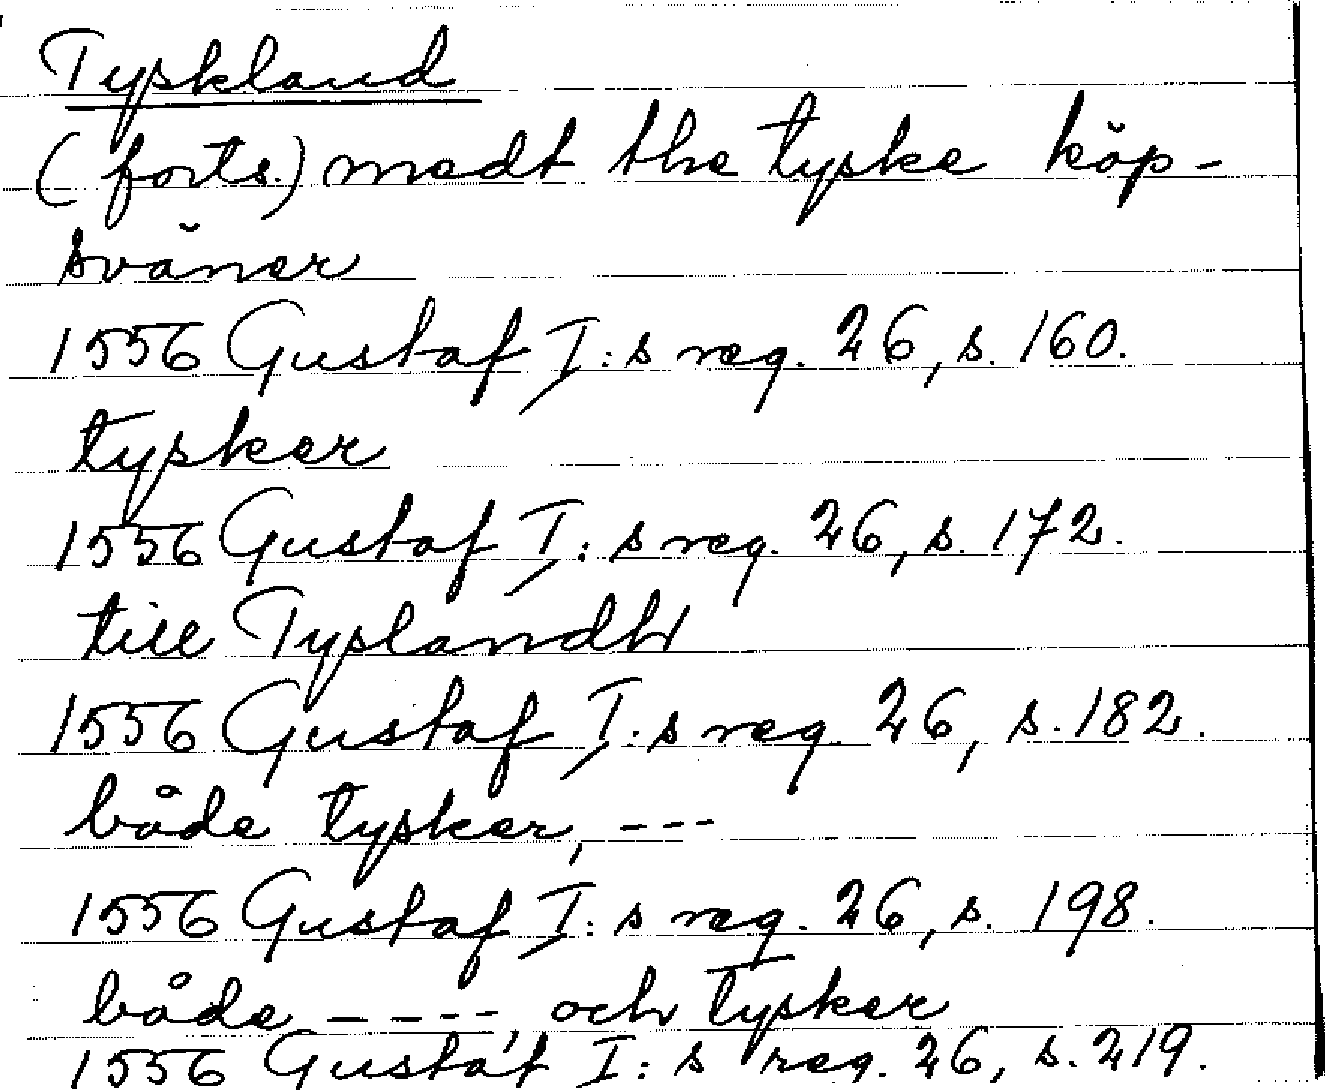 Tyskland
(forts.) medt the tyske köp-
sväner
1556 Gustaf I:s reg. 26, s. 160.
tysker
1556 Gustaf I:s reg. 26, s. 172.
till Tyslandh
1556 Gustaf I:s reg. 26, s. 182.
både tysker, ---
1556 Gustaf I:s reg. 26, s. 198.
både ----, och tysker
1556 Gustaf I:s reg. 26, s. 219.